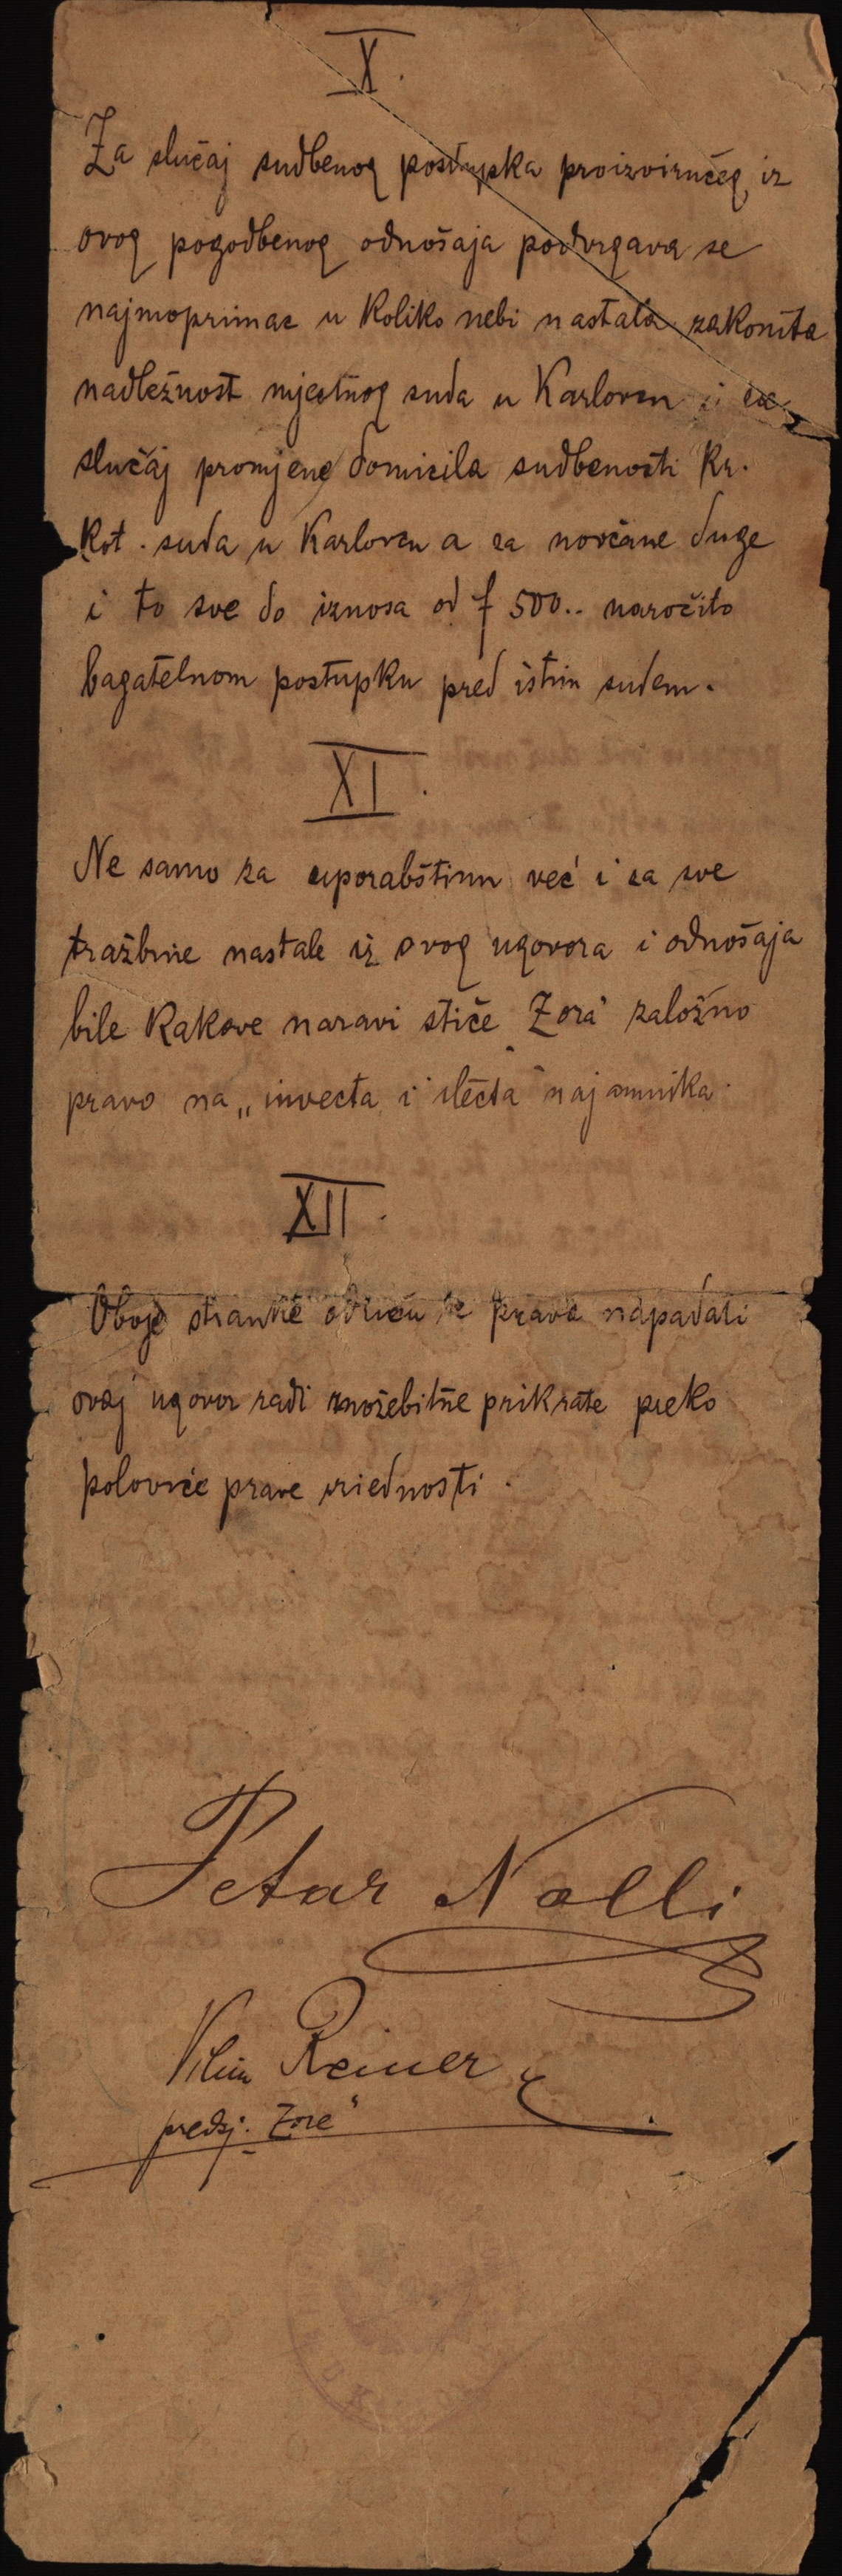 X.
Za slučaj sudbenog postupka proizvirućeg iz
ovog pogodbenog odnošaja podvrgava se
najmoprimac u koliko nebi nastala zakonita
nadležnost mjestnog suda u Karlovcu i za
slučaj promjene domicila sudbenosti kr.
kot. suda u Karlovcu a za novčane duge
i to sve do iznosa od f 500.. naročito
bagatelnom postupku pred istim sudem.
XI.
Ne samo za uporabštinu već i za sve
tražbine nastale iz ovog ugovora i odnošaja
bile kakove naravi stiče „Zora" založno
pravo na „invecta i illecta" najamnika.
XII.
Oboje stranke odriču se prava napadati
ovaj ugovor radi možebitne prikrate preko
polovice prave vriednosti.
Petar Nalli
Vilim Reiner
predsj. Zore"